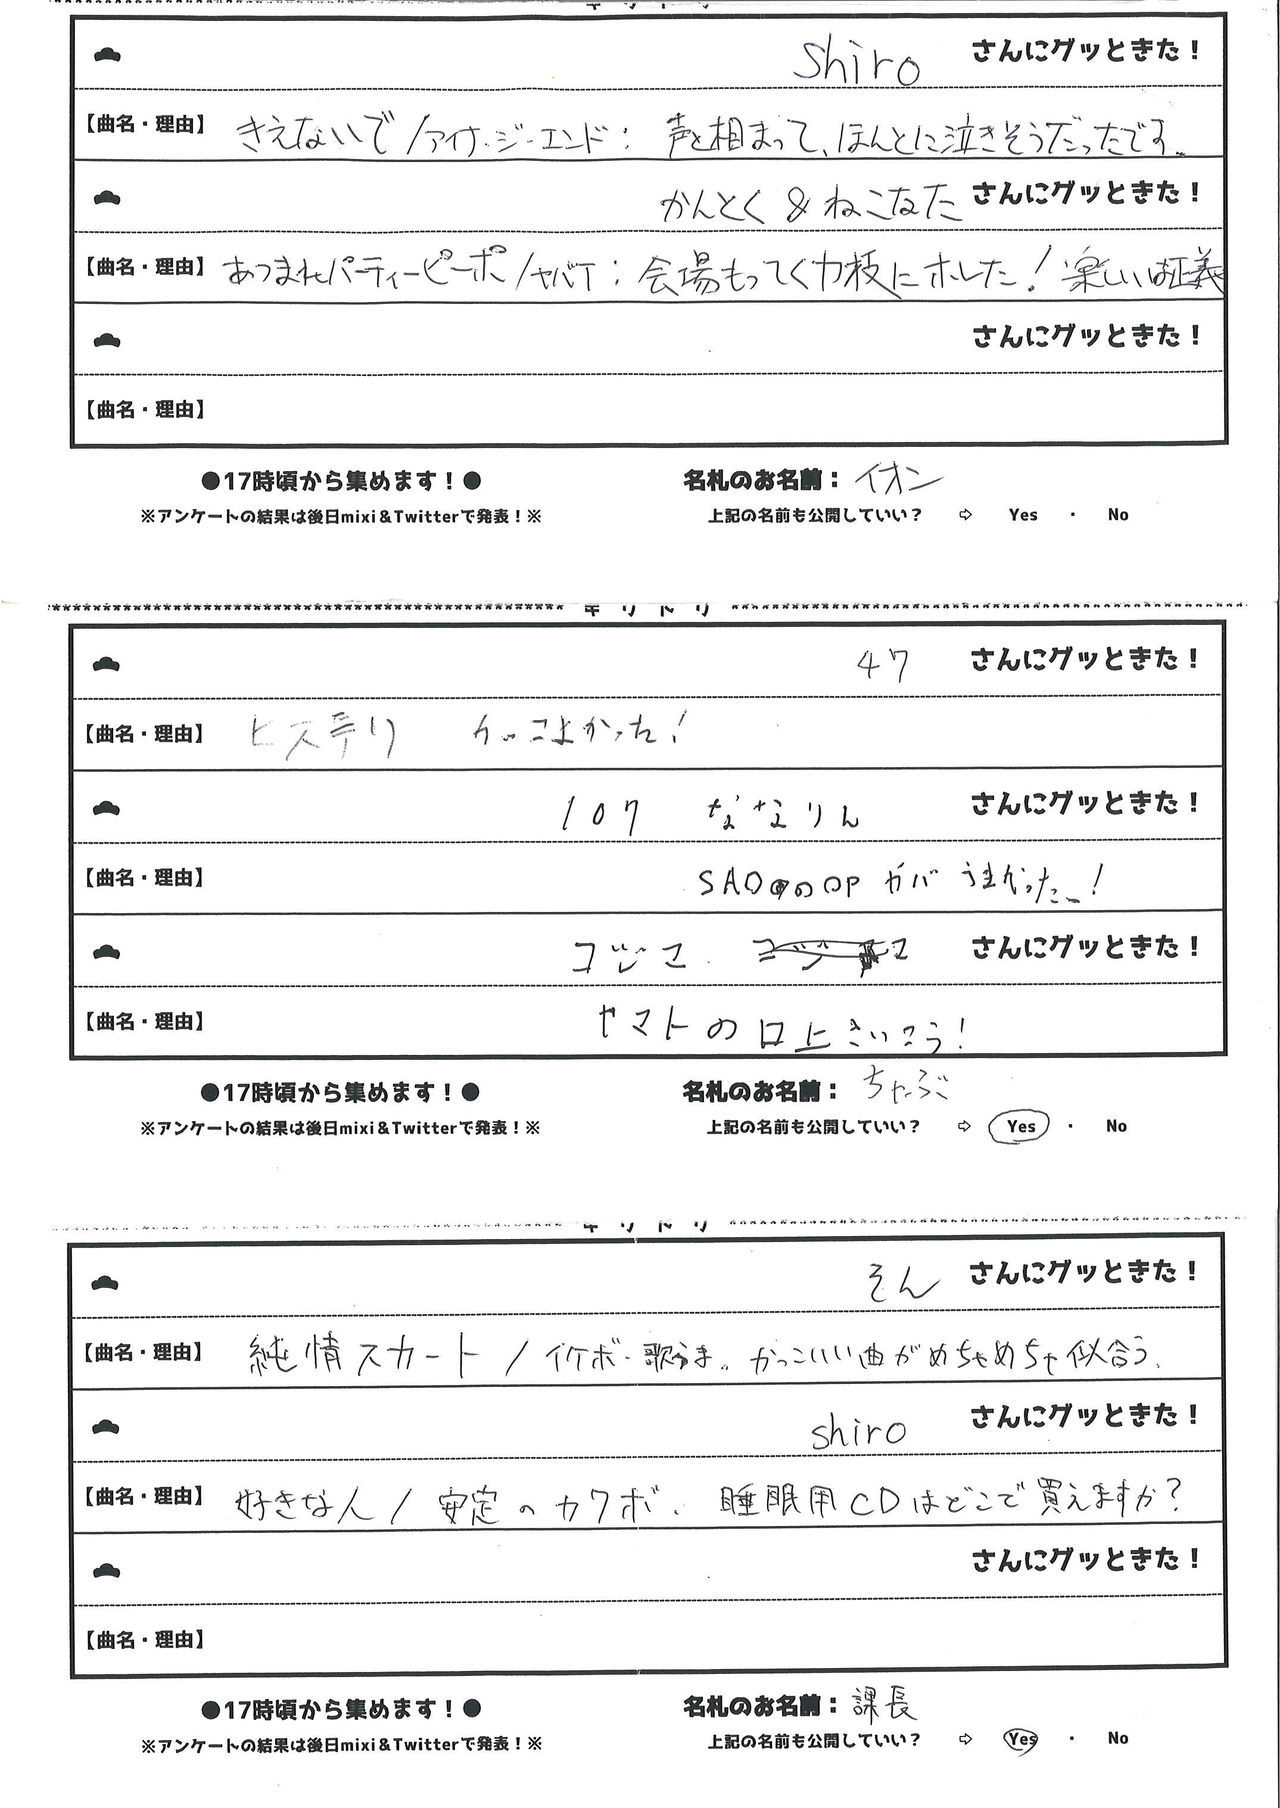 キリトリ
shiro さんにグッときた！
【曲名・理由】 きえないで/アイナ・ジ・エンド： 声と相まって、ほんとに泣きそうだったです。
かんとく & ねこなた さんにグッときた！
【曲名・理由】 あつまれパーティーピーポー/ヤバT： 会場もってく力技にホレた！楽しいは正義
さんにグッときた！
【曲名・理由】
●17時頃から集めます！● 名札のお名前： イオン
※アンケートの結果は後日mixi＆Twitterで発表！※ 上記の名前も公開していい？ ⇨ Yes ・ No
キリトリ
47 さんにグッときた！
【曲名・理由】 ヒステリ かっこよかった！
107 ななりん さんにグッときた！
【曲名・理由】 SAOのOP ガバ うまかった！
コジマ さんにグッときた！
【曲名・理由】 ヤマトの口上さいこう！
●17時頃から集めます！● 名札のお名前： ちゃぶ
※アンケートの結果は後日mixi＆Twitterで発表！※ 上記の名前も公開していい？ ⇨ Yes ・ No
キリトリ
そん さんにグッときた！
【曲名・理由】 純情スカート / イケボ・歌うま。かっこいい曲がめちゃめちゃ似合う。
shiro さんにグッときた！
【曲名・理由】 好きな人 / 安定のカワボ。 睡眠用CDはどこで買えますか？
さんにグッときた！
【曲名・理由】
●17時頃から集めます！● 名札のお名前： 課長
※アンケートの結果は後日mixi＆Twitterで発表！※ 上記の名前も公開していい？ ⇨ Yes ・ No